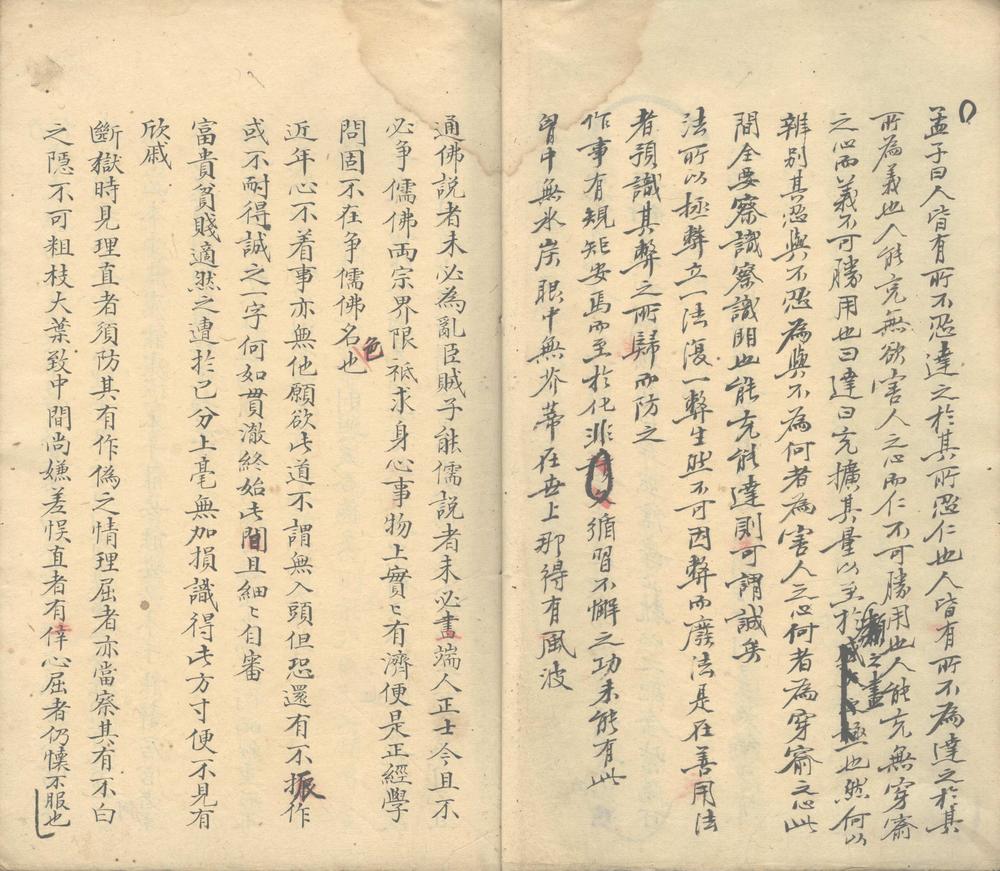 孟子曰人皆有所不忍達之於其所忍仁也人皆有所不為達之於其
所為義也人能充無欲害人之心而仁不可勝用也人能充無穿窬
之心而義不可勝用也曰達曰充擴其量以至於漸之盡極也然何以
辨別其忍與不忍為與不為何者為害人之心何者為穿窬之心此
間全要察識察識明也能充能達則可謂誠矣
法所以極弊立一法復一弊生然不可因弊而廢法是在善用法
者預識其弊之所歸而防之
作事有規矩安焉而至於化非久循習不懈之功未能有此
胷中無氷炭眼中無芥蒂在世上那得有風波
通佛說者未必為亂臣賊子能儒說者未必盡端人正士今且不
必争儒佛兩宗界限祇求身心事物上實〻有濟便是正經學
問固不在争儒佛名色也
近年心不着事亦無他願欲此道不謂無入頭但恐還有不振作
或不耐得誠之一字何如貫澈終始此間且細〻自審
富貴貧賤適然之遭於已分上毫無加損識得此方寸便不見有
欣戚
斷獄時見理直者須防其有作偽之情理屈者亦當察其有不白
之隱不可粗枝大葉致中間尚嫌差悮直者有倖心屈者仍懷不服也